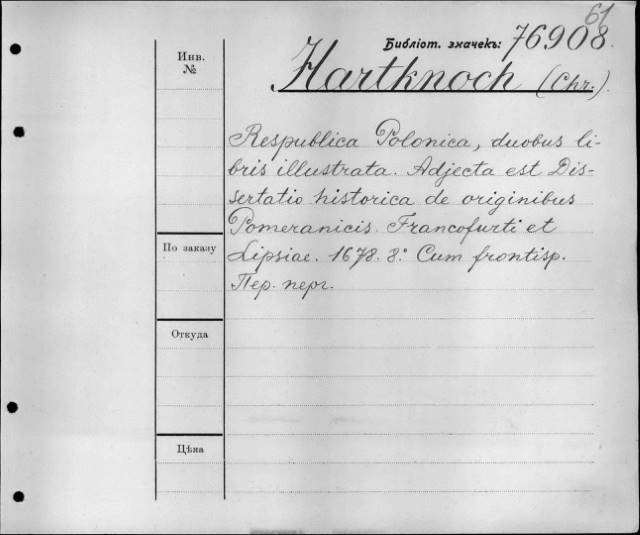 61
Библіот. значекъ: 76908.
Инв.
№
Hartknoch (Chr.).
Respublica Polonica, duobus li-
bris illustrata. Adjecta est Dis-
sertatio historica de originibus
Pomeranicis. Francofurti et
По заказу
Lipsiae. 1678. 8.° Cum frontisp.
Пер. перг.
Откуда
Цѣна